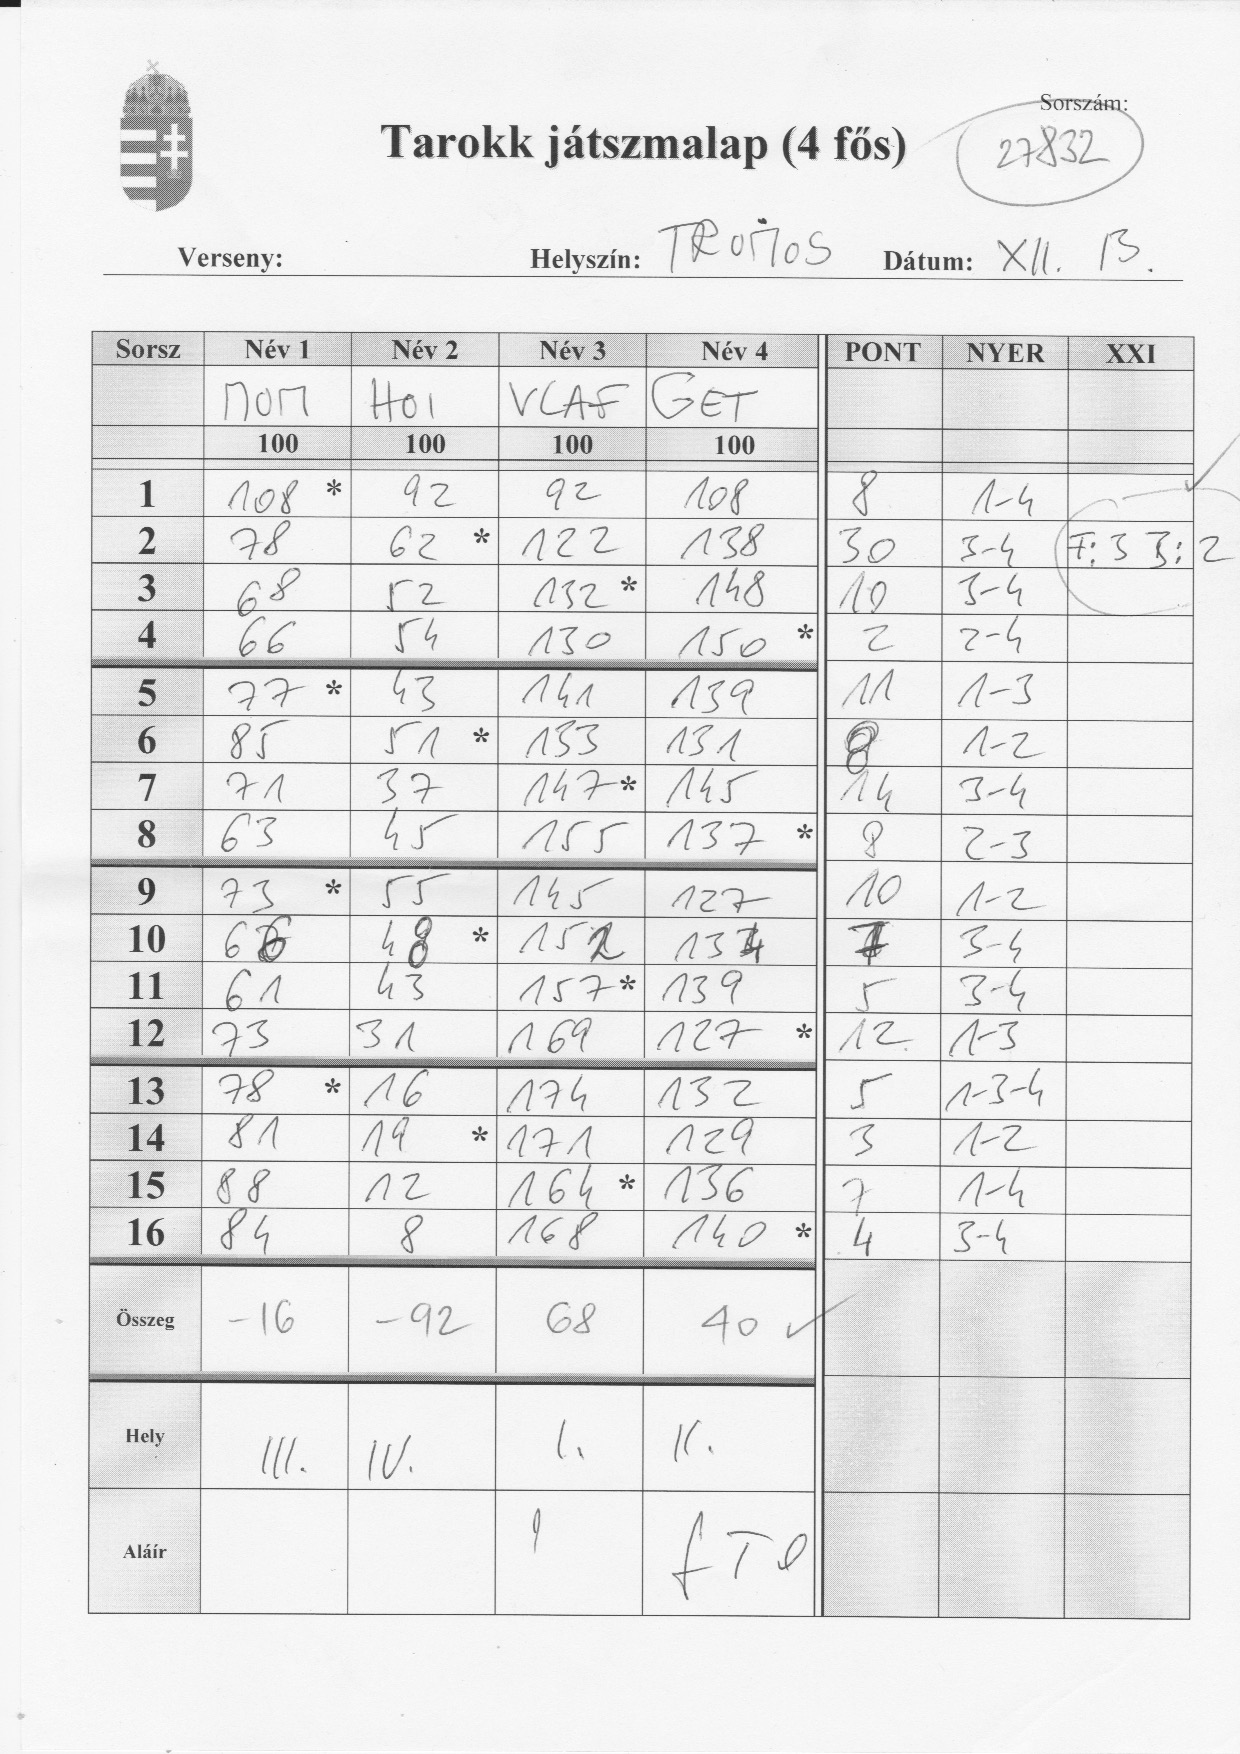 Sorszám:
Tarokk játszmalap (4 fős)
27832
Verseny: Helyszín: Dátum: XII. 13.
Sorsz Név 1 Név 2 Név 3 Név 4 PONT NYER XXI
MOM HOI VLAF GET
100 100 100 100
1 108 * 92 92 108 8 1-4
2 78 62 * 122 138 30 3-4 F: 3 I: 2
3 68 52 132 * 148 10 3-4
4 66 54 130 150 * 2 2-4
5 77 * 43 141 139 11 1-3
6 85 51 * 133 131 8 1-2
7 71 37 147 * 145 14 3-4
8 63 45 155 137 * 8 2-3
9 73 * 55 145 127 10 1-2
10 66 48 * 152 134 7 3-4
11 61 43 157 * 139 5 3-4
12 73 31 169 127 * 12 1-3
13 78 * 16 174 132 5 1-3-4
14 81 19 * 171 129 3 1-2
15 88 12 164 * 136 7 1-4
16 84 8 168 140 * 4 3-4
Összeg -16 -92 68 40
Hely III. IV. I. II.
Aláír